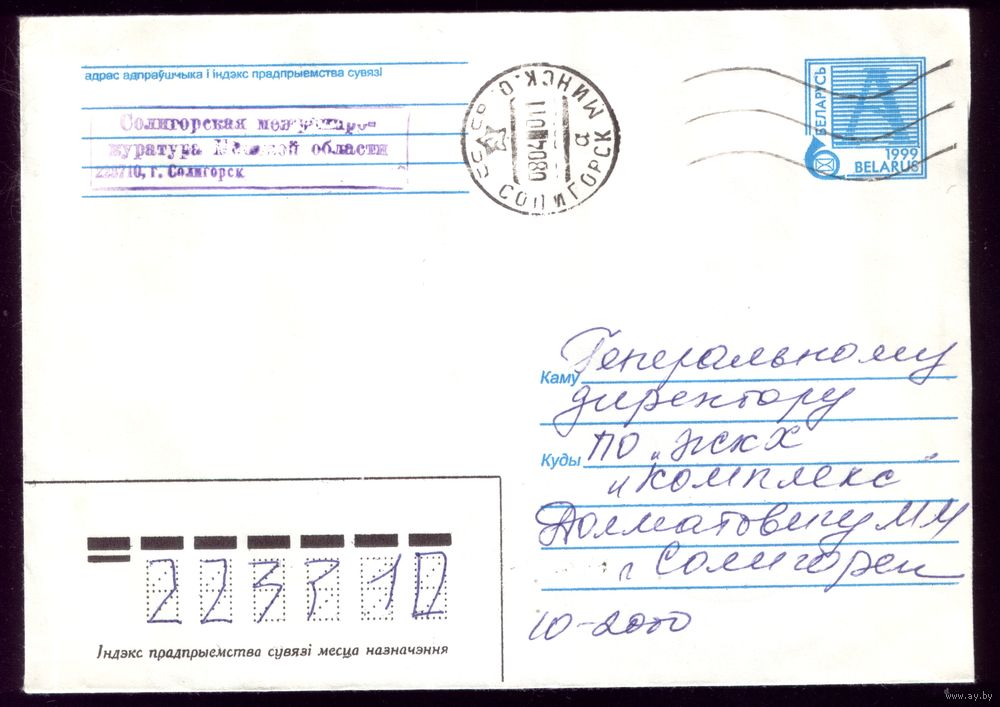 адрас адпраўшчыка і індэкс прадпрыемства сувязі
Солигорская межрайпро-
куратура Минской области
223710, г. Солигорск
СССР МИНСК.О.
080401
а
СОЛИГОРСК
БЕЛАРУСЬ
А
1999
BELARUS
Каму Генеральному
директору
Куды ПО "ЖКХ
"Комплекс"
Долматовичу М М
г Солигорск
10-2000
223710
Індэкс прадпрыемства сувязі месца назначэння
www.ay.by